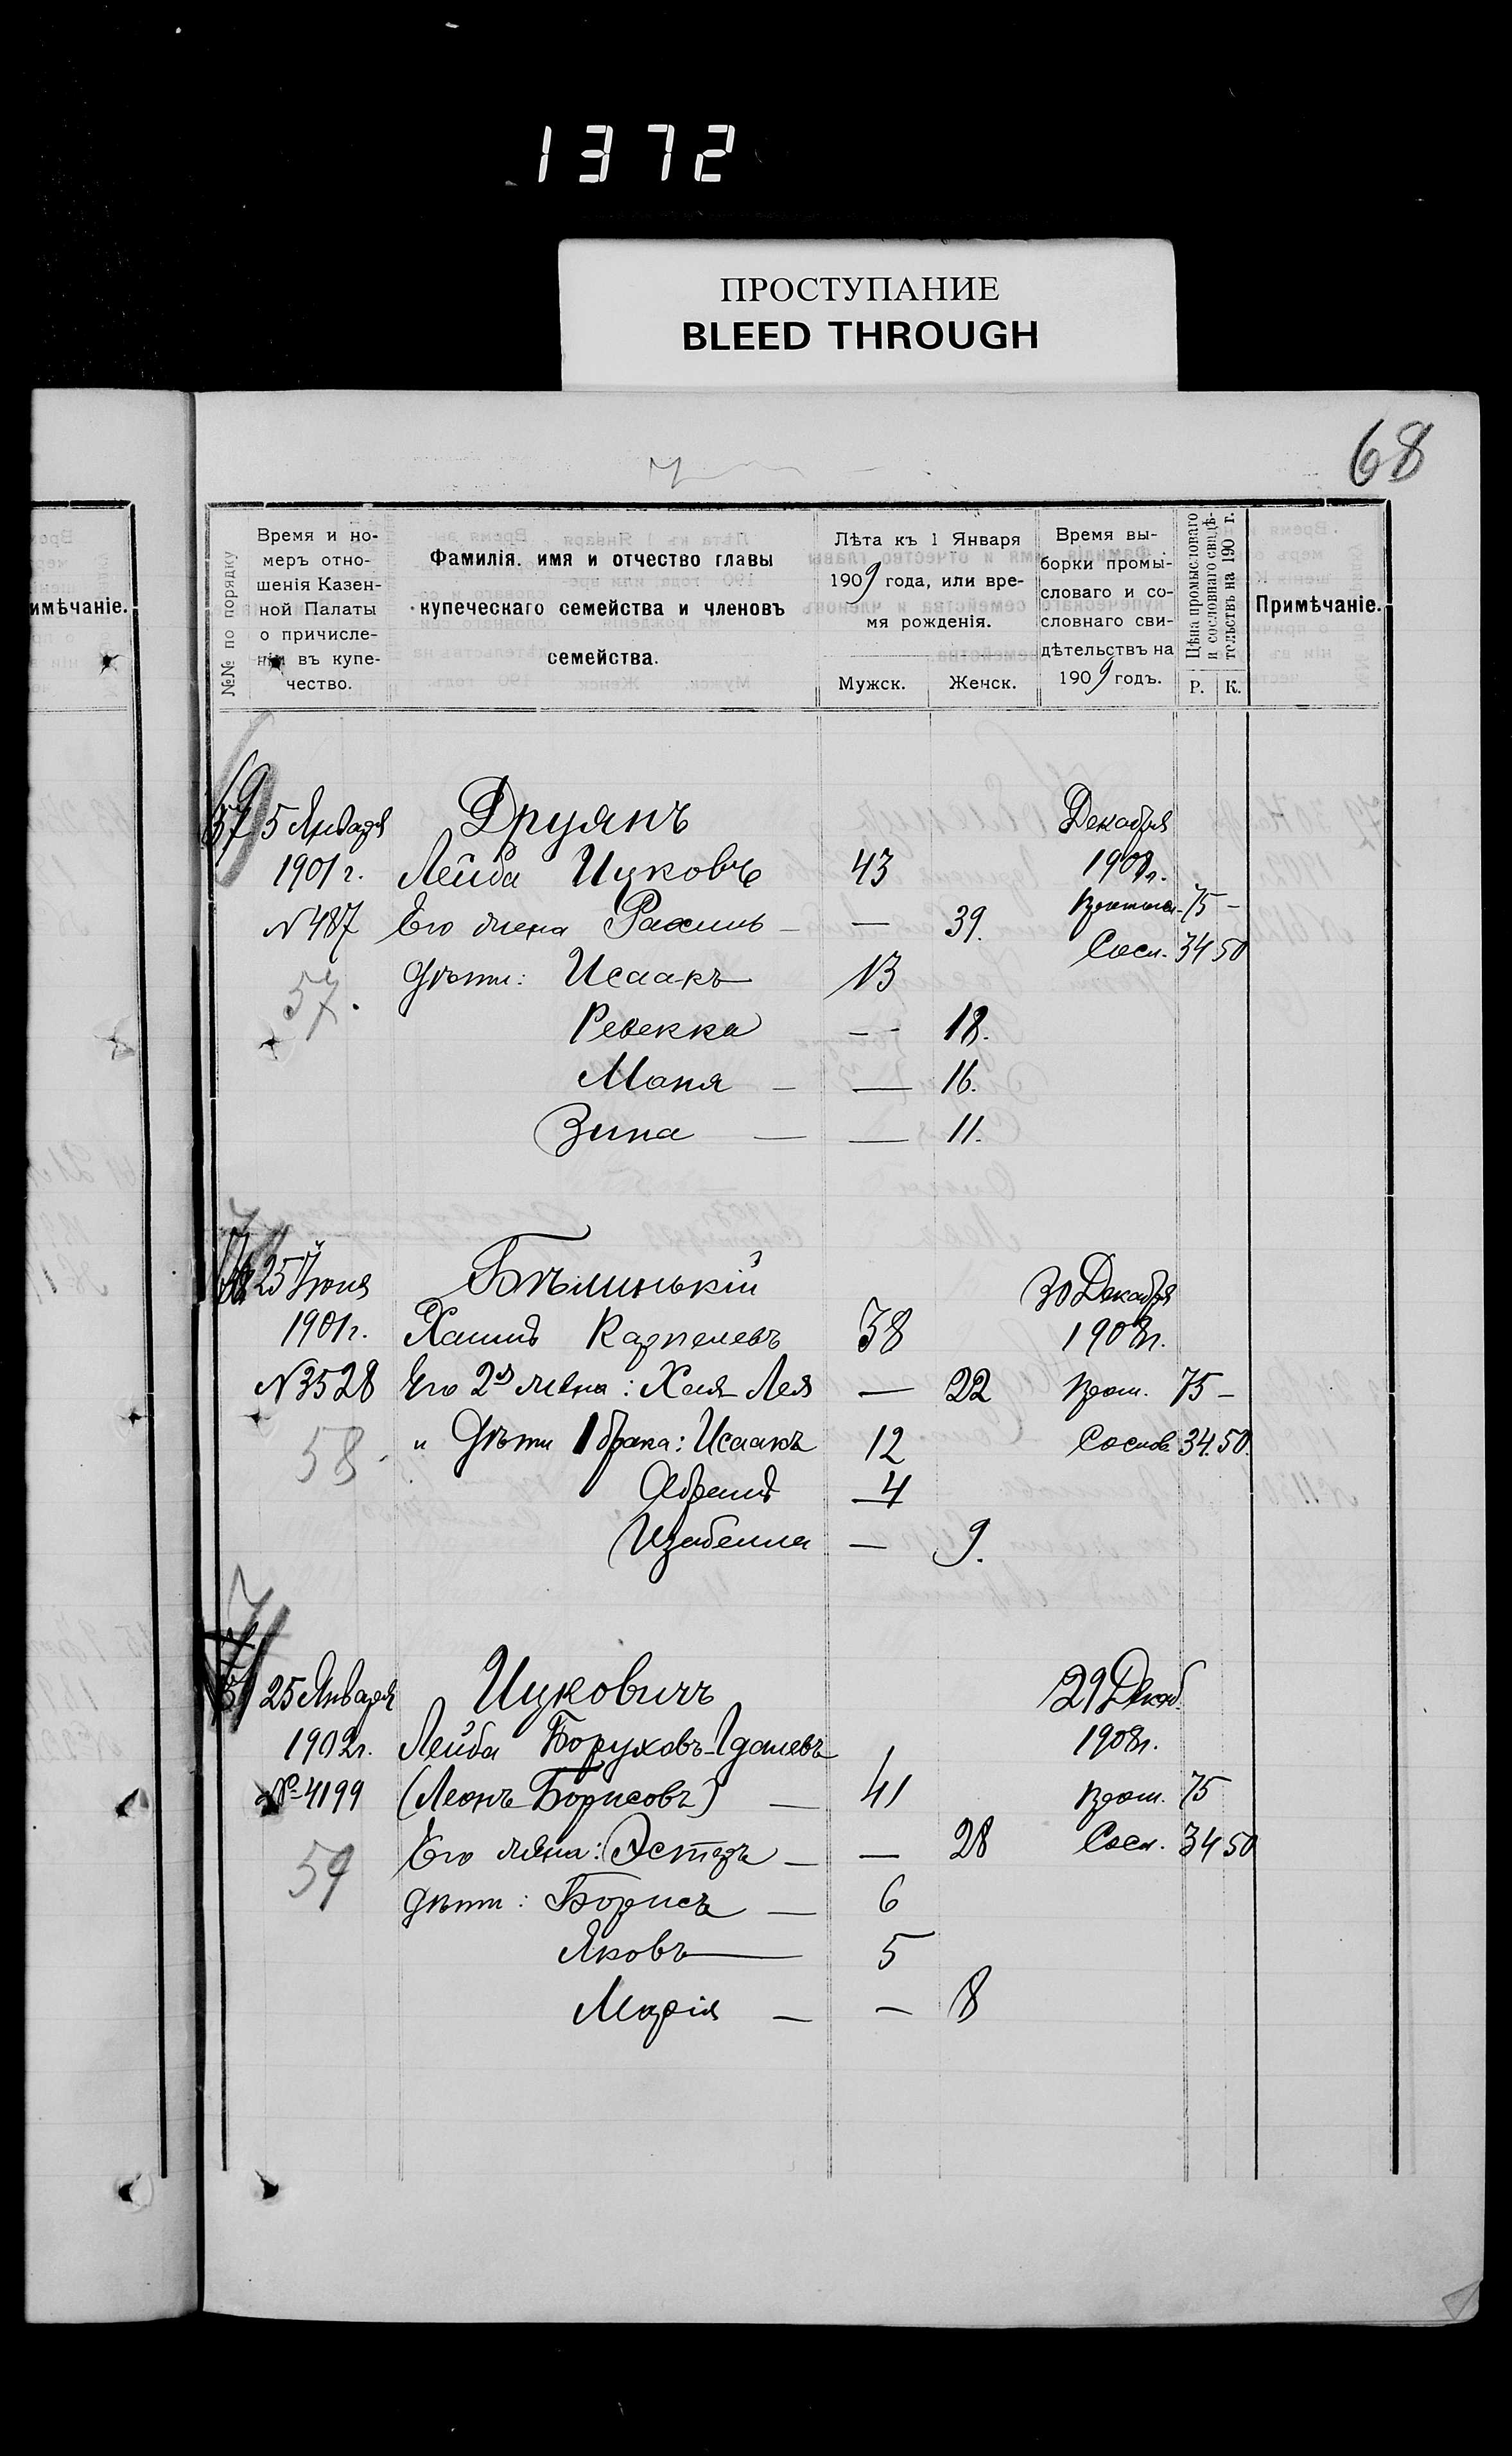 1372
ПРОСТУПАНИЕ
BLEED THROUGH
68
имѣчаніе.
№№ по порядку
Время и но-
меръ отно-
шенія Казен-
ной Палаты
о причисле-
ніи въ купе-
чество.
Фамилія, имя и отчество главы
купеческаго семейства и членовъ
семейства.
Лѣта къ 1 Января
1909 года, или вре-
мя рожденія.
Мужск. Женск.
Время вы-
борки промы-
словаго и со-
словнаго сви-
дѣтельствъ на
1909 годъ.
Цѣна промысловаго
и сословнаго свидѣ-
тельствъ на 190 г.
Р. К.
Примѣчаніе.
5 Января Друянъ Декабря
1901 г. Лейба Ицковъ 43 1908 г.
N 487 Его жена Рахиль — — 39. 75 —
Сосл. 34 50
57. Дѣти: Исаакъ 13
Ревекка — 18.
Маня — — 16.
Зина — — 11.
25 Іюня Бѣлинькій 30 Декабря
1901 г. Хаимъ Карпелевъ 38 1908 г.
N 3528 Его 2я жена: Хая-Лея — 22 Пром. 75 —
58 " Дѣти 1 брака: Исаакъ 12 34.50.
Абрамъ 4
Изабелла — 9.
25 Января Ицковичъ 29 Декаб.
1902 г. Лейба Боруховъ- 1908 г.
№ 4199 (Леонъ Борисовъ) — 41 Пром. 75
59 Его жена: Эстеръ — — 28 Сосл. 34 50
Дѣти: Борисъ — 6
Яковъ — 5
Марія — — 8